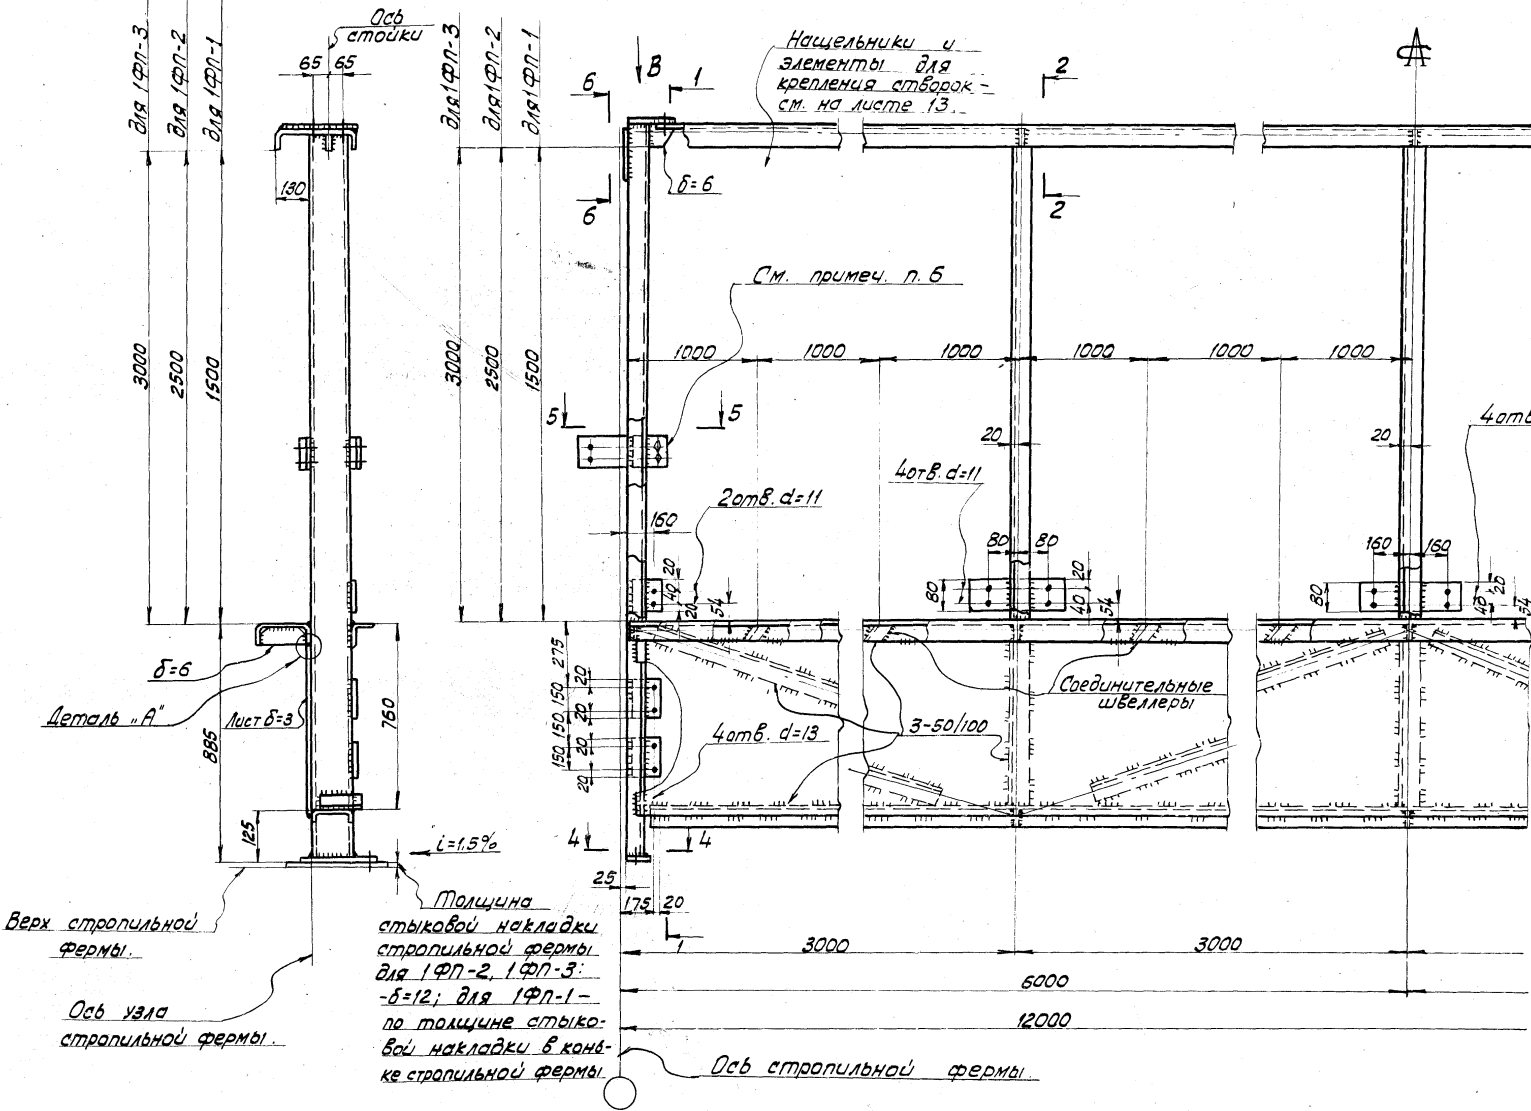 для 1ФП-3
для 1ФП-2
для 1ФП-1
Ось
стойки
65
65
130
3000
2500
1500
δ=6
Деталь „А"
Лист δ=3
760
885
125
i=1,5%
Верх стропильной
фермы.
Ось узла
стропильной фермы.
Толщина
стыковой накладки
стропильной фермы
для 1ФП-2, 1ФП-3:
-δ=12; для 1ФП-1-
по толщине стыко-
вой накладки в конь-
ке стропильной фермы
для 1ФП-3
для 1ФП-2
для 1ФП-1
3000
2500
1500
В
6
1
6
δ=6
Нащельники и
элементы для
крепления створок-
см. на листе 13.
2
2
См. примеч. п. 6
1000
1000
1000
1000
1000
1000
5
5
20
20
4отв
4отв. d=11
2отв. d=11
160
20
40
20
54
80
80
80
20
40
54
160
160
80
20
40
54
275
150
150
150
20
20
20
20
4отв. d=13
3-50/100
Соединительные
швеллеры
4
4
25
175
20
1
3000
3000
6000
12000
Ось стропильной фермы.